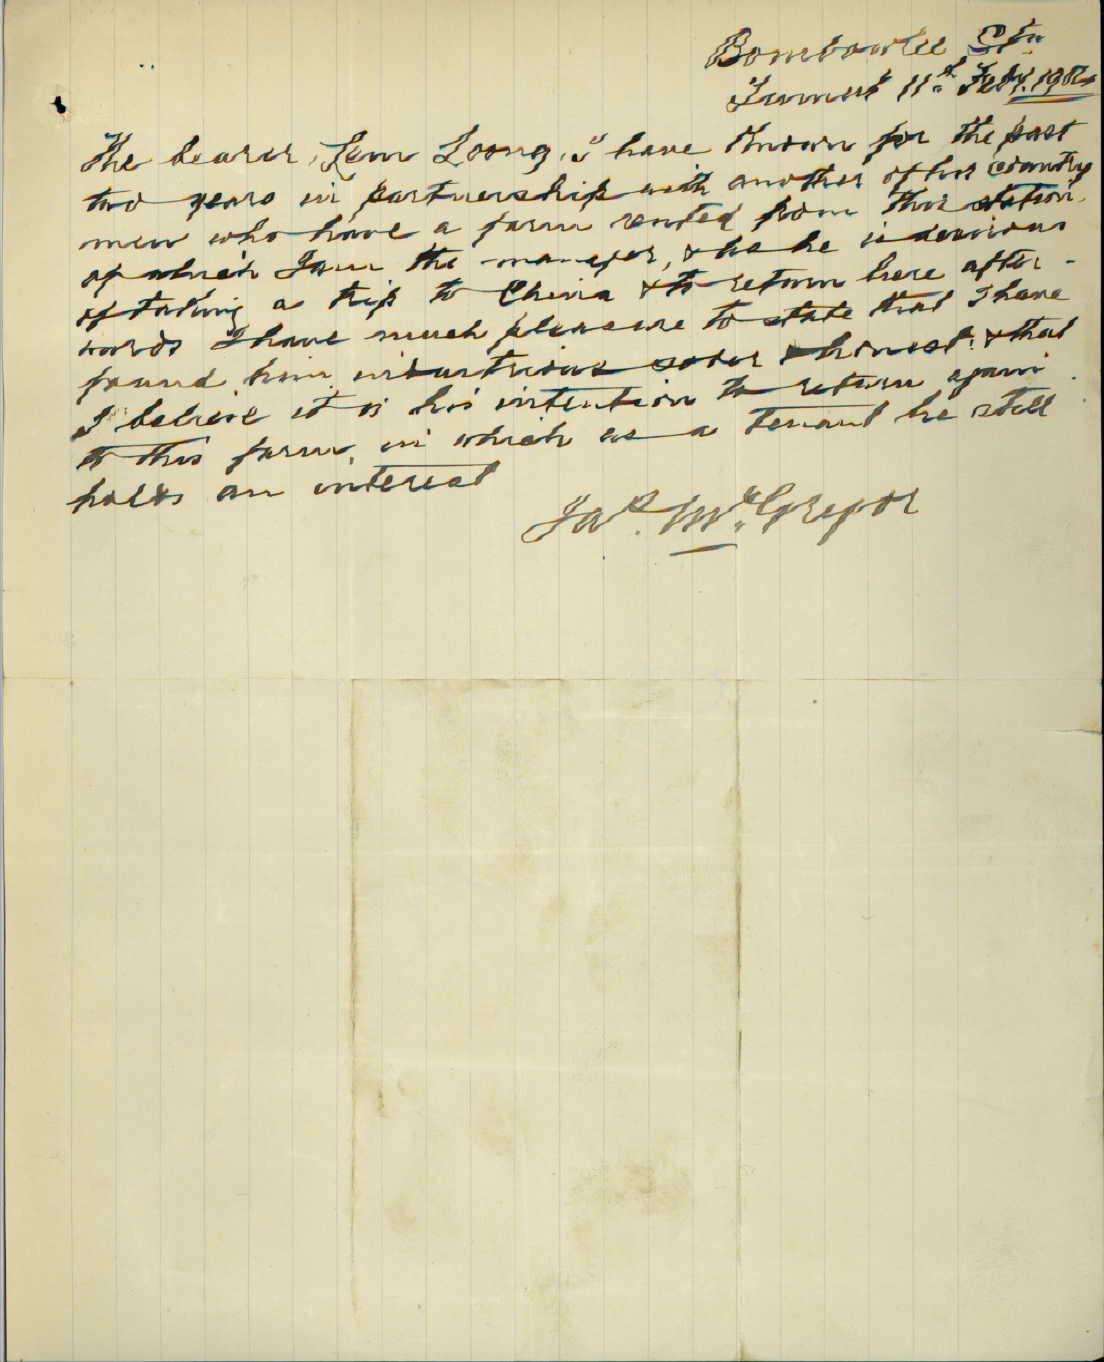 Bombowlee Stn
Tumut 11th Feby. 190
The bearer, Lum Loong, I have known for the past
two years in partnership with another of his country
men who have a farm rented from this station,
of which I am the manager, & as he is desirous
of taking a trip to China & to return here after-
wards I have much pleasure to state that I have
found him industrious sober & honest: & that
I believe it is his intention to return again
to this farm, in which as a tenant he still
holds an interest
Jas. McGregor